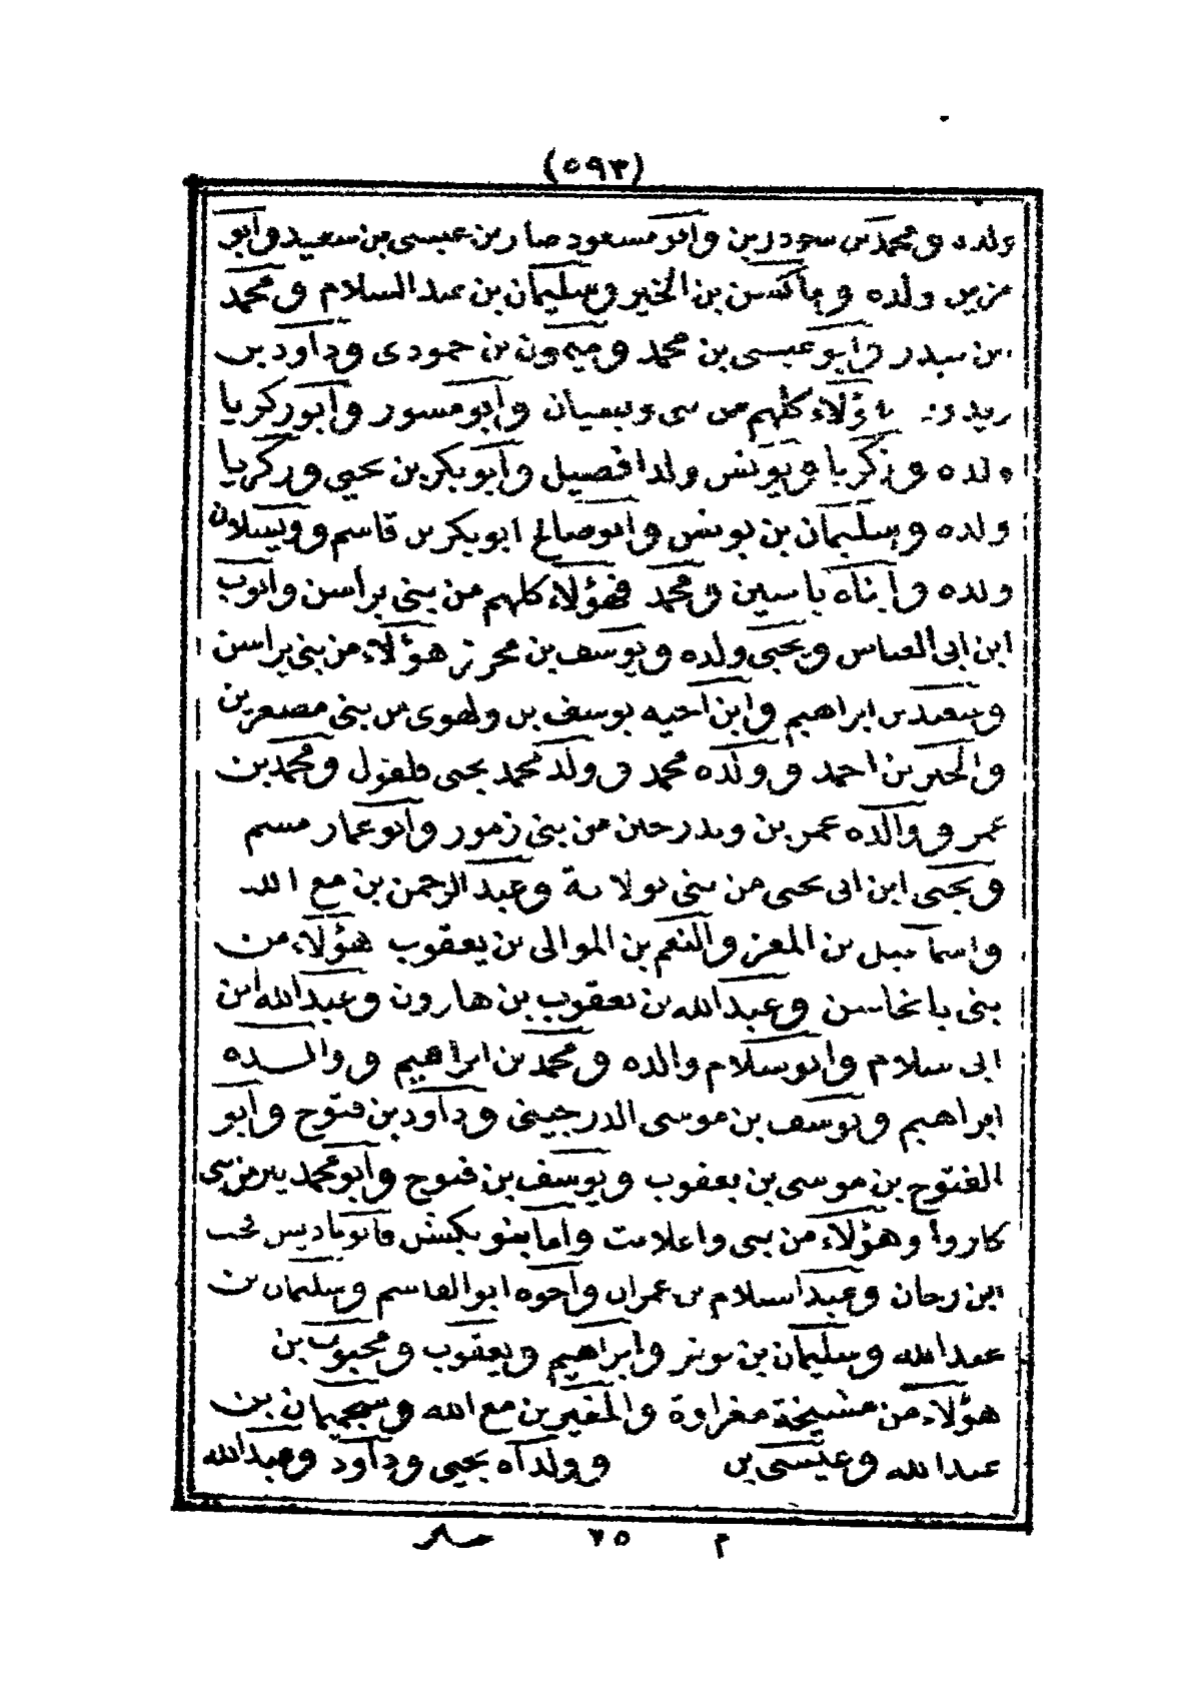 (٥٩٣)
ولده ومحمد بن وابو مسعود صابر بن عيسى بن سعيد وابو
ولده وماكسن بن الخير وسليمان بن عبد السلام ومحمد
بن سدر وابو عيسى بن محمد وميمون بن حمودى وداود بن
هؤلاء كلهم من وابو مسور وابو زكريا
ولده وزكريا ويونس ولدا افصيل وابو بكر بن يحيى وزكريا
ولده وسليمان بن يونس وابو صالح ابو بكر بن قاسم وويسلان
ولده وابناه ياسين ومحمد فهؤلاء كلهم من بنى يراسن وايوب
ابن ابى العباس ويحيى ولده ويوسف بن محرز هؤلاء من بنى يراسن
وسعيد بن ابراهيم وابن اخيه يوسف بن ولهوى من بنى مصعر بن
والخير بن احمد وولده محمد وولد محمد يحيى فلفول ومحمد بن
عمر ووالده عمر بن وبدرحين من بنى زمور وابو عمار مسم
ويحيى ابن ابى يحيى من بنى وعبد الرحمن بن مع الله
بن المعز والنعم بن الموالى بن يعقوب هؤلاء من
بنى يا نحاسن وعبد الله بن يعقوب بن هارون وعبد الله ابن
ابى سلام وابو سلام والده ومحمد بن ابراهيم ووالده
ابراهيم ويوسف بن موسى الدرجينى وداود بن فتوح وابو
الفتوح بن موسى بن يعقوب ويوسف بن فتوح وابو محمد
وهؤلاء من بنى واما بنو يكشن
ابن رحان وعبد السلام بن عمران واخوه ابو القاسم وسليمان بن
عبد الله وسليمان بن وابراهيم ويعقوب ومحبوب بن
هؤلاء من مشيخة مغراوة والمغير بن مع الله بن
عبد الله وعيسى بن وولداه يحيى وداود وعبد الله
م ٧٥